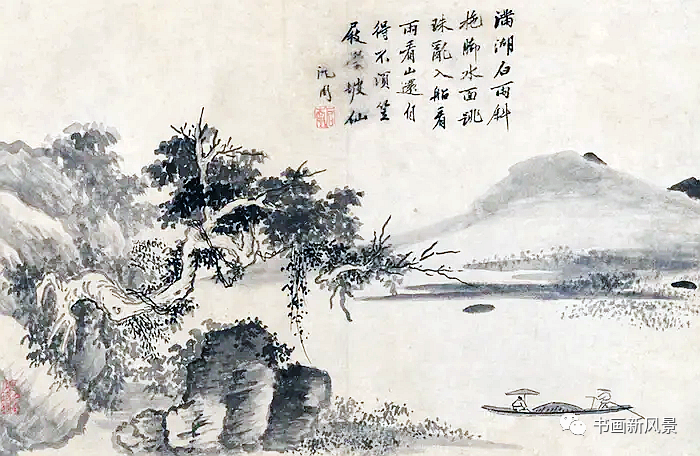 滿湖白雨斜
拖脚水面跳
珠亂入船看
雨看山還自
得不須笠
屐學坡仙
沈周
书画新风景